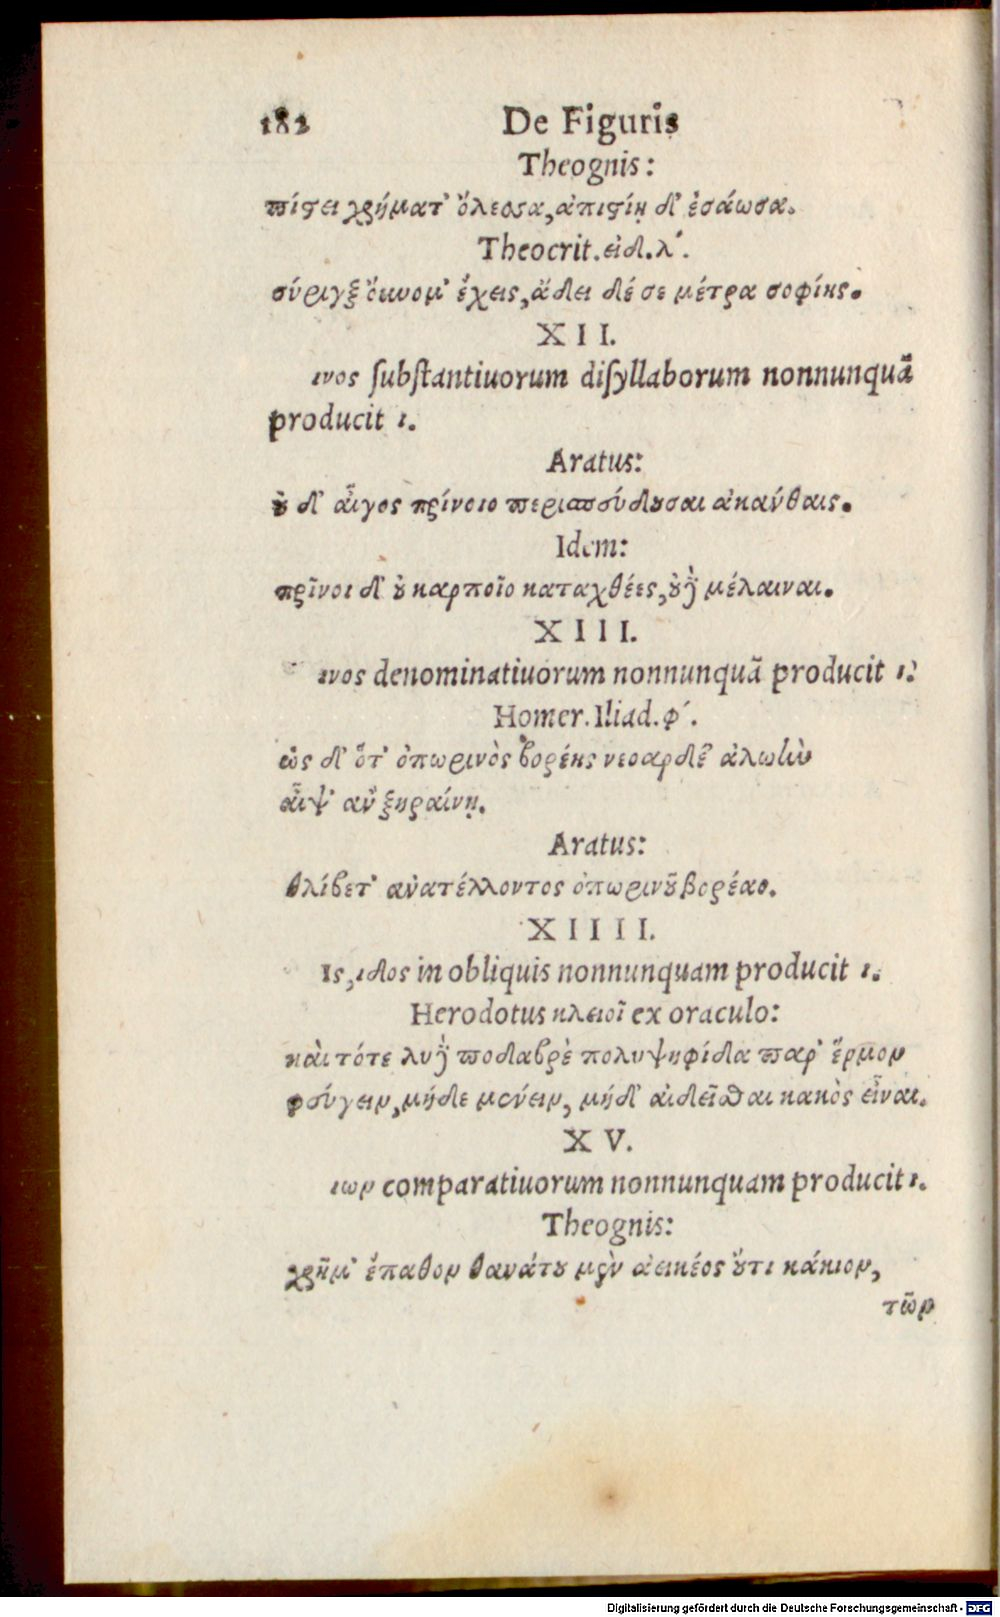 182 De Figuris
Theognis:
πίστει χρήματ' ὄλεσσα, ἀπιστίῃ δ' ἐσάωσα.
Theocrit. εἰδ. λ'.
σύριγξ οὔνομ' ἔχεις, ᾄδει δέ σε μέτρα σοφίης.
XII.
ινος substantiuorum disyllaborum nonnunquã
producit ι.
Aratus:
οὐ δ' αἶγος πρίνοιο περισπεύδουσαι ἀκάνθαις.
Idem:
πρῖνοι δ' οὐ καρποῖο καταχθέες, οὐδὲ μέλαιναι.
XIII.
ινος denominatiuorum nonnunquã producit ι.
Homer. Iliad. φ'.
ὡς δ' ὅτ' ὀπωρινὸς βορέης νεοαρδέ' ἀλωὴν
αἶψ' ἂν ξηραίνῃ.
Aratus:
θλίβετ' ἀνατέλλοντος ὀπωρινοῦ βορέαο.
XIIII.
Ις, ιδος in obliquis nonnunquam producit ι.
Herodotus κλειοῖ ex oraculo:
καὶ τότε λυδὲ ποδαβρὲ πολυψηφίδα παρ' ἕρμον
φεύγειν, μήδε μένειν, μήδ' αἰδεῖσθαι κακὸς εἶναι.
XV.
ιων comparatiuorum nonnunquam producit ι.
Theognis:
χρῆμ' ἔπαθον θανάτου μὲν ἀεικέος οὔτι κάκιον,
τῶν
Digitalisierung gefördert durch die Deutsche Forschungsgemeinschaft - DFG